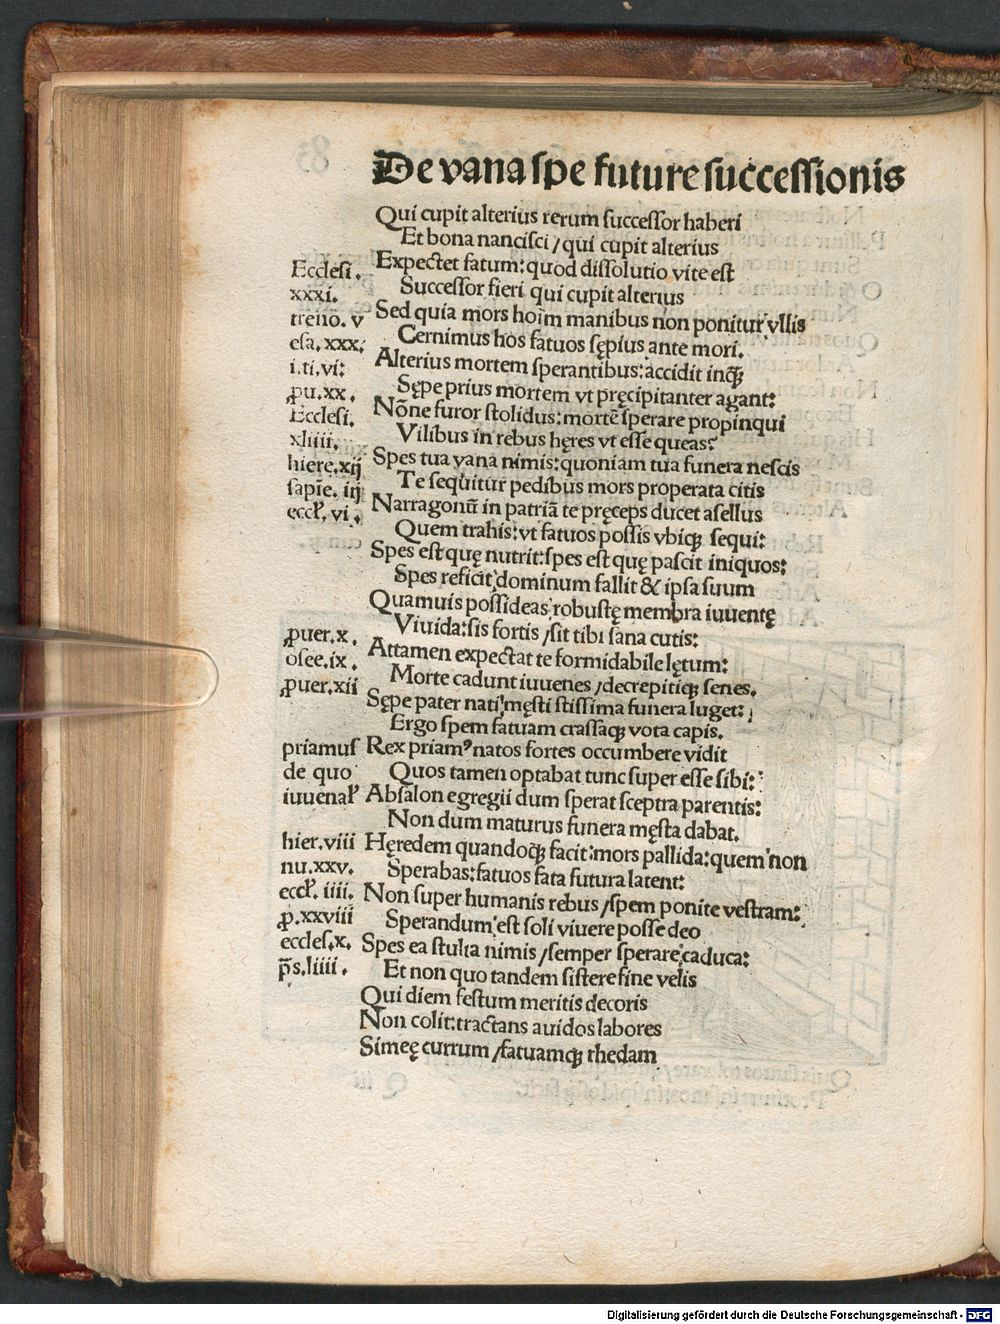 De vana spe future successionis
Qui cupit alterius rerum successor haberi
Et bona nancisci / qui cupit alterius
Ecclesi. Expectet fatum: quod dissolutio vite est
xxxi. Successor fieri qui cupit alterius
treño. v Sed quia mors hoīm manibus non ponitur vllis
esa. xxx. Cernimus hos fatuos sępius ante mori.
i. ti. vi: Alterius mortem sperantibus: accidit inqꝫ
ꝓu. xx. Sępe prius mortem vt pręcipitanter agant:
Ecclesi. Nōne furor stolidus: mortē sperare propinqui
xliiii. Vilibus in rebus hęres vt esse queas?
hiere. xij Spes tua vana nimis: quoniam tua funera nescis
sapiē. iij Te sequitur pedibus mors properata citis
eccł. vi. Narragonū in patriā te pręceps ducet asellus
Quem trahis: vt fatuos possis vbiqꝫ sequi:
Spes est quę nutrit: spes est quę pascit iniquos:
Spes reficit, dominum fallit & ipsa suum
Quamuis possideas robustę membra iuuentę
ꝓuer. x. Viuida: sis fortis / sit tibi sana cutis:
osee. ix. Attamen expectat te formidabile lętum:
ꝓuer. xii Morte cadunt iuuenes / decrepitiqꝫ senes.
Sępe pater nati męstississima funera luget:
Ergo spem fatuam crassaqꝫ vota capis.
priamus Rex priamꝰ natos fortes occumbere vidit
de quo Quos tamen optabat tunc super esse sibi:
iuuenał Absalon egregii dum sperat sceptra parentis:
Non dum maturus funera męsta dabat.
hier. viii Hęredem quandoqꝫ facit: mors pallida: quem non
nu. xxv. Sperabas: fatuos fata futura latent:
eccł. iiii. Non super humanis rebus / spem ponite vestram:
ꝓ. xxviii Sperandum est soli viuere posse deo
eccles. x. Spes ea stulta nimis / semper sperare caduca:
p̄s. liiii. Et non quo tandem sistere fine velis
Qui diem festum meritis decoris
Non colit: tractans auidos labores
Simeę currum / fatuamqꝫ rhedam
Digitalisierung gefördert durch die Deutsche Forschungsgemeinschaft - DFG